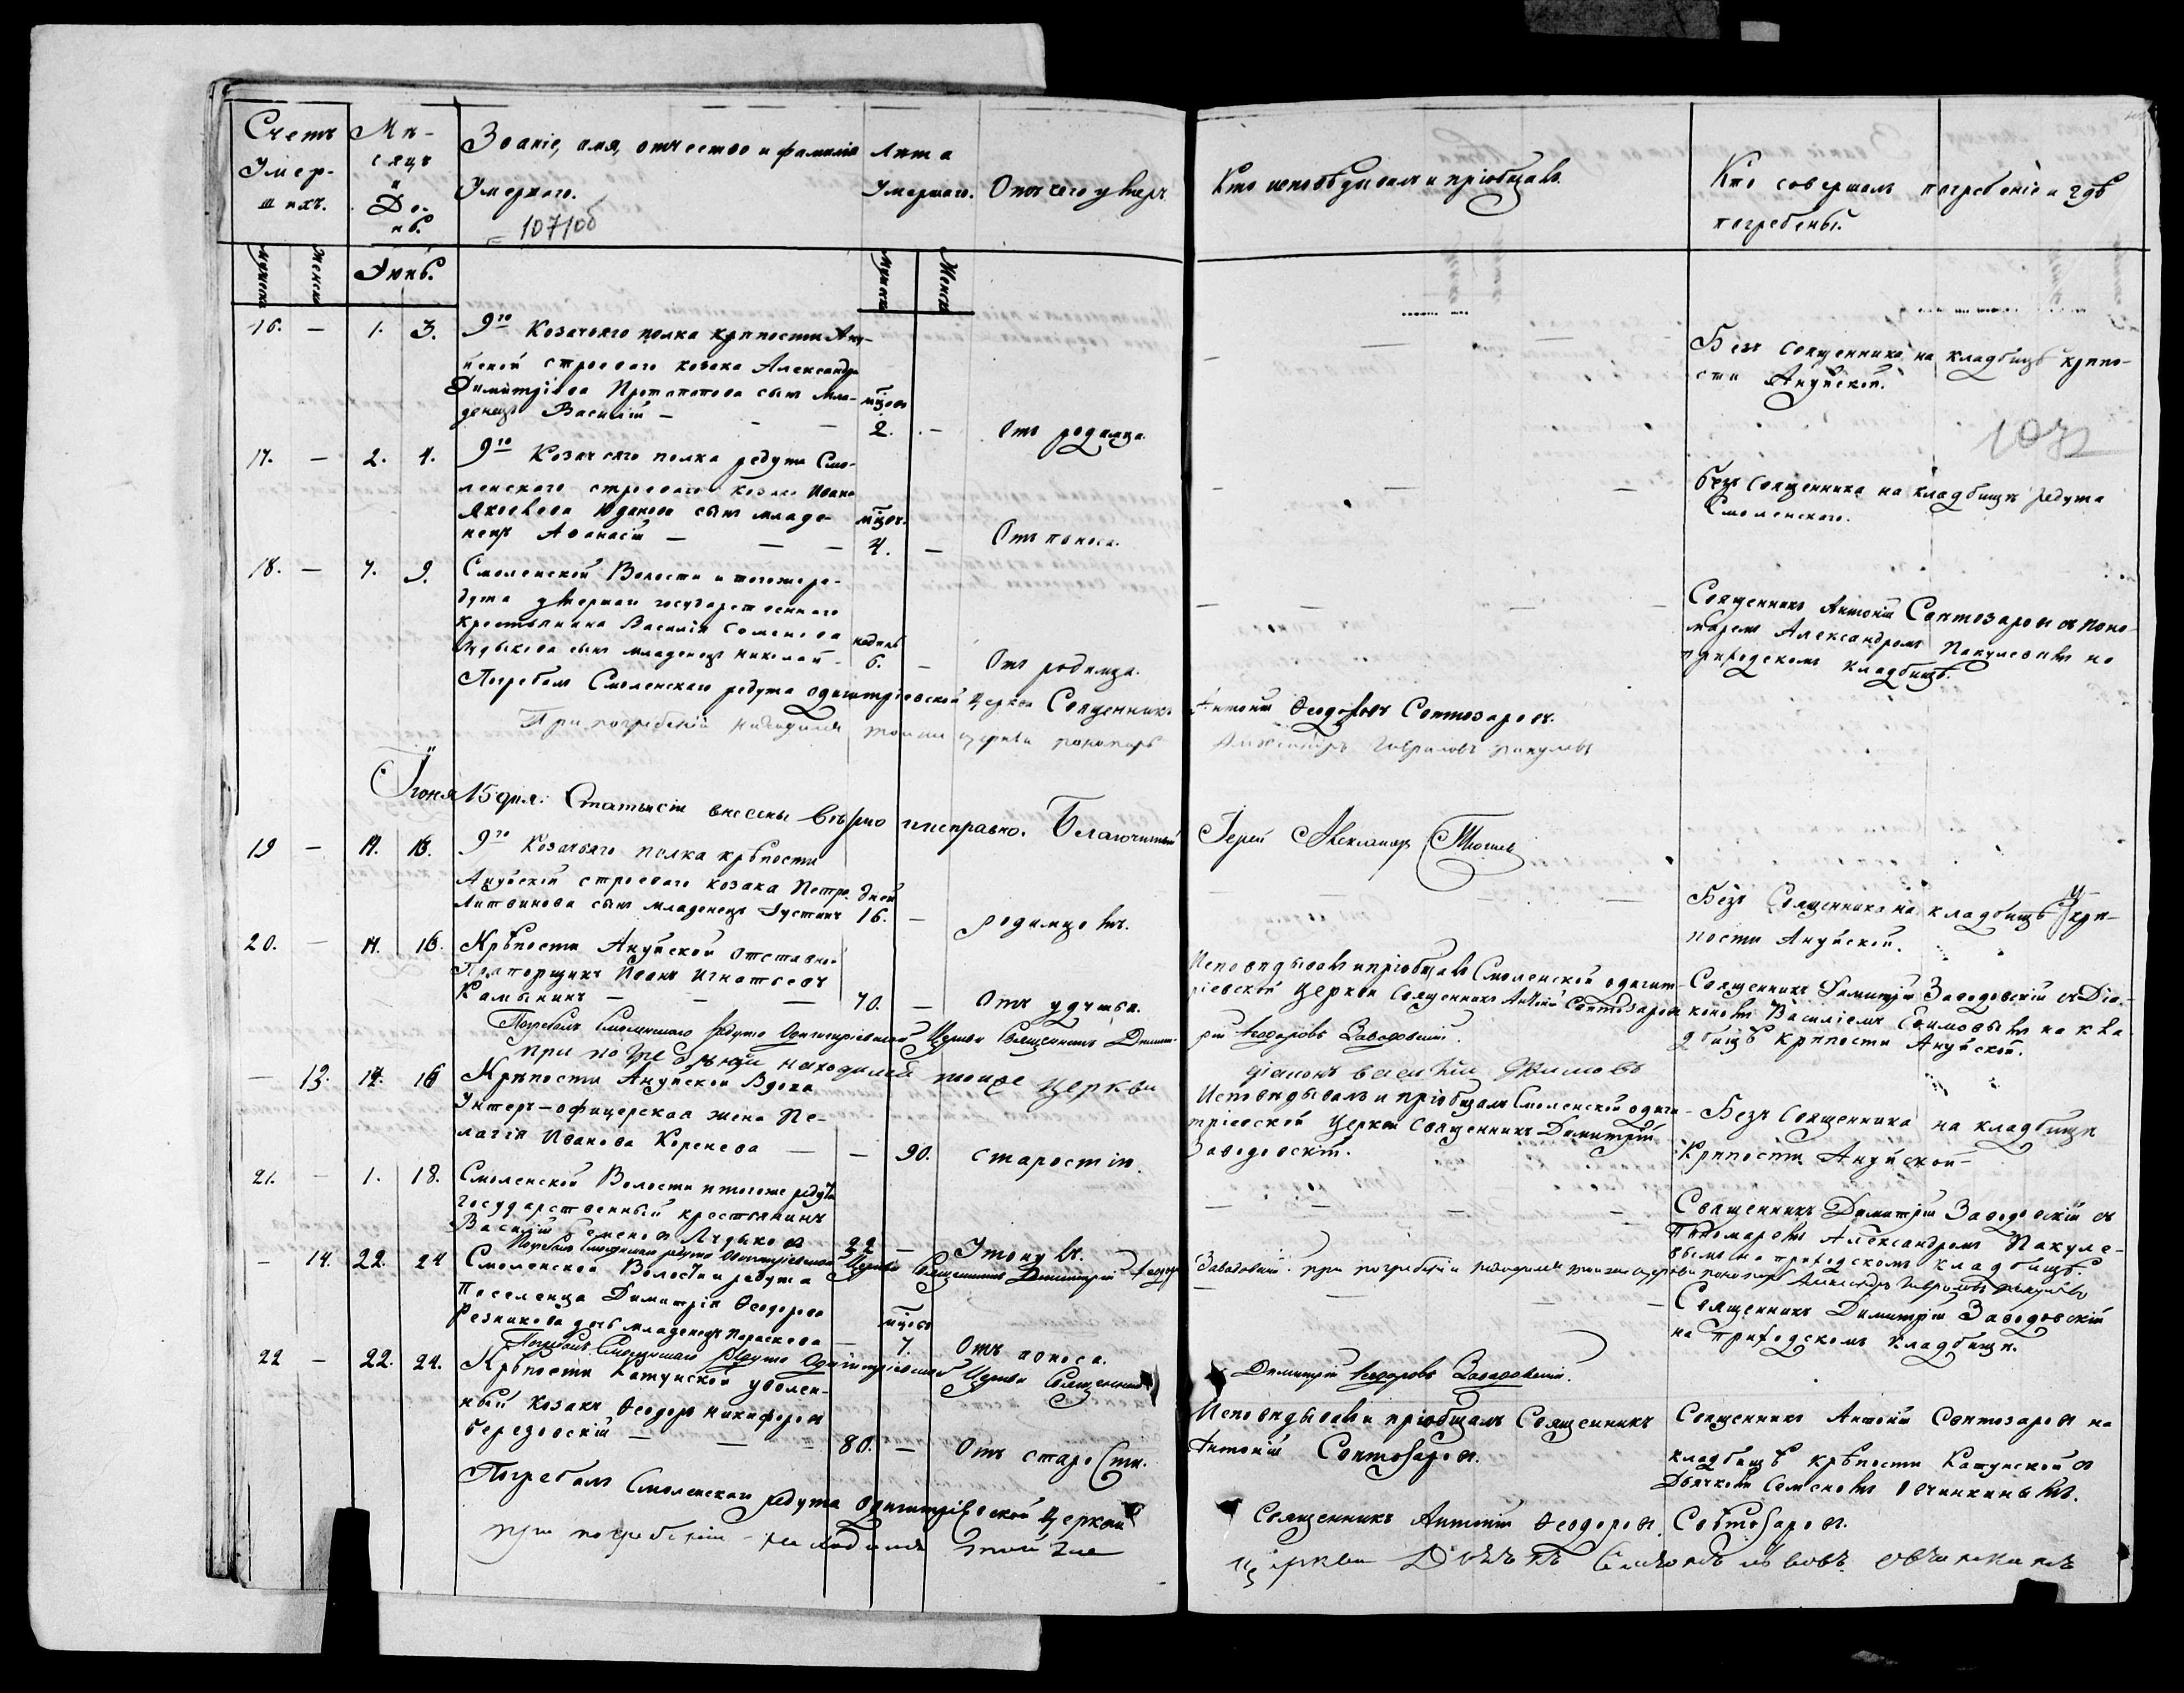 Счетъ Умер-шихъ.
Мѣ-сяцъ и Де-нь.
Званіе, имя, отчество и фамилія
Умершаго.
107 об
Лѣта
Умершаго.
Отъ чего умеръ
Кто исповѣдывалъ и пріобщалъ.
Кто совершалъ погребеніе и гдѣ
погребены.
Мужеска
Женска
Іюнь.
Мужеска
Женска
16. — 1. 3.
9го Козачьяго полка крѣпости Ану-
йской строеваго козака Александра
Димитріева Протопопова сынъ мла-
денецъ Василій —
мцовъ
2. —
Отъ родимца.
Безъ священника, на кладбищѣ крѣпо-
сти Ануйской.
107
17. — 2. 4.
9го Козачьяго полка редута Смо-
ленского строеваго козака Ивана
Яковлева Юданова сынъ младе-
нецъ Аѳанасій —
мцовъ
4. —
Отъ поноса.
безъ священника на кладбищѣ редута
Смоленского.
18. — 7. 9.
Смоленской Волости и тогоже ре-
дута умершаго государственнаго
крестьянина Василія Семенова
сынъ младенецъ Николай
недѣль
6. —
Отъ родимца.
Священникъ Антоній Свѣтозаровъ съ поно-
маремъ Александромъ Пакулевымъ на
приходскомъ кладбищѣ.
Погребалъ Смоленскаго редута одигитріевской церкви Священникъ Антоній Ѳеодоровъ Свѣтозаровъ.
При погребеніи находился тойже церкви пономарь Александръ Гавриловъ пакулевъ
Іюня 15 дня. Статьи сіи внесены вѣрно и исправно. Благочинный Іерей Александръ
19 — 14. 16.
9го Козачьяго полка крѣпости
Ануйскій строеваго козака Петра
Литвинова сынъ младенецъ Іустинъ
дней
16. —
родимцемъ.
Безъ Священника на кладбищѣ крѣ-
пости Ануйской.
20. — 14. 16.
Крѣпости Ануйской отставной
Прапорщикъ Иванъ Игнатьевъ
Камынинъ —
70. —
Отъ удушья.
Исповѣдывалъ и пріобщалъ Смоленской одигит-
ріевской Церкви священникъ Антоній Свѣтозаровъ
Священникъ Димитрій Заводовскій съ Діа-
кономъ Василіемъ Ефимовымъ на кла-
дбищѣ крѣпости Ануйской.
Погребалъ Смоленскаго редута Одигитріевской Церкви Священникъ Димит-рій Ѳеодоровъ Заводовскій.
при погребеніи находился тойже церкви діаконъ василій Ефимовъ
— 13. 14. 16
Крѣпости Ануйской Вдова
Унтеръ-офицерская жена Пе-
лагія Иванова Коренева —
— 90.
старостію.
Исповѣдывалъ и пріобщалъ Смоленской одиги-
тріевской церкви священникъ Димитрій
Заводовскій.
Безъ священника на кладбищѣ
Крѣпости Ануйской
21. — 1. 18.
Смоленской Волости и тогоже редута
государственный крестьянинъ
Василій Семеновъ
22 —
Утонулъ.
Священникъ Димитрій Заводовскій съ
Пономаремъ Александромъ Пакуле-
вымъ на приходскомъ кладбищѣ.
Погребалъ Смоленскаго редута Одигитріевской Церкви Священникъ Димитрій Ѳеодоровъ Заводовскій. при погребеніи находился тоиже церкви пономарь Александръ Гавриловъ пакулевъ
— 14. 22. 24
Смоленской Волости и редута
Поселенца Димитрія Ѳеодорова
Резникова дочь младенецъ Параскева —
мцовъ
7.
Отъ поноса.
Священникъ Димитрій Заводовскій
на приходскомъ кладбищѣ.
Погребалъ Смоленскаго редута Одигитріевской Церкви Священникъ Димитрій Ѳеодоровъ Заводовскій.
22 — 22. 24.
Крѣпости Катунской уволен-
ный козакъ Ѳеодоръ Никифоровъ
березовскій —
80. —
Отъ старости.
Исповѣдывалъ и пріобщалъ Священникъ
Антоній Свѣтозаровъ.
Священникъ Антоній Свѣтозаровъ на
кладбищѣ крѣпости Катунской съ
Дьячкомъ Семеномъ Овчинкинымъ.
Погребалъ Смоленскаго редута одигитріевской церкви Священникъ Антоній Ѳеодоровъ Свѣтозаровъ.
при погребеніи находился тойже церкви Дьячекъ Семенъ овчинкинъ